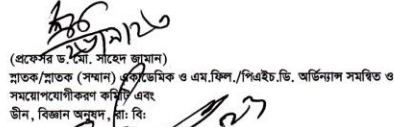 (প্রফেসর ড. মো. সাহেদ জামান)
স্নাতক/স্নাতক (সম্মান) একাডেমিক ও এম.ফিল./পিএইচ.ডি. অর্ডিন্যান্স সমন্বিত ও
সময়োপযোগীকরণ কমিটি এবং
ডীন, বিজ্ঞান অনুষদ, রাঃ বিঃ